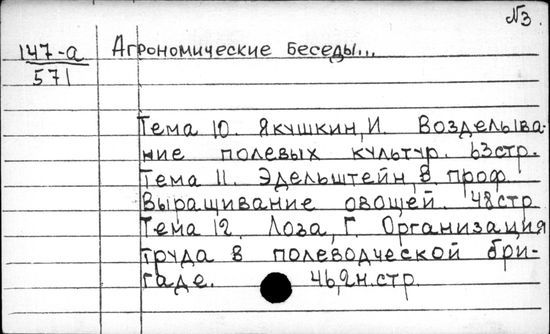 №3.
147-а Агрономические беседы...
571
Тема 10. Якушкин, И. Возделыва-
ние полевых культур. 63стр.
Тема 11. Эдельштейн, В. проф.
Выращивание овощей. 48стр
Тема 12. Лоза, Г. Организация
труда в полеводческой бри-
гаде. 46,2н.стр.